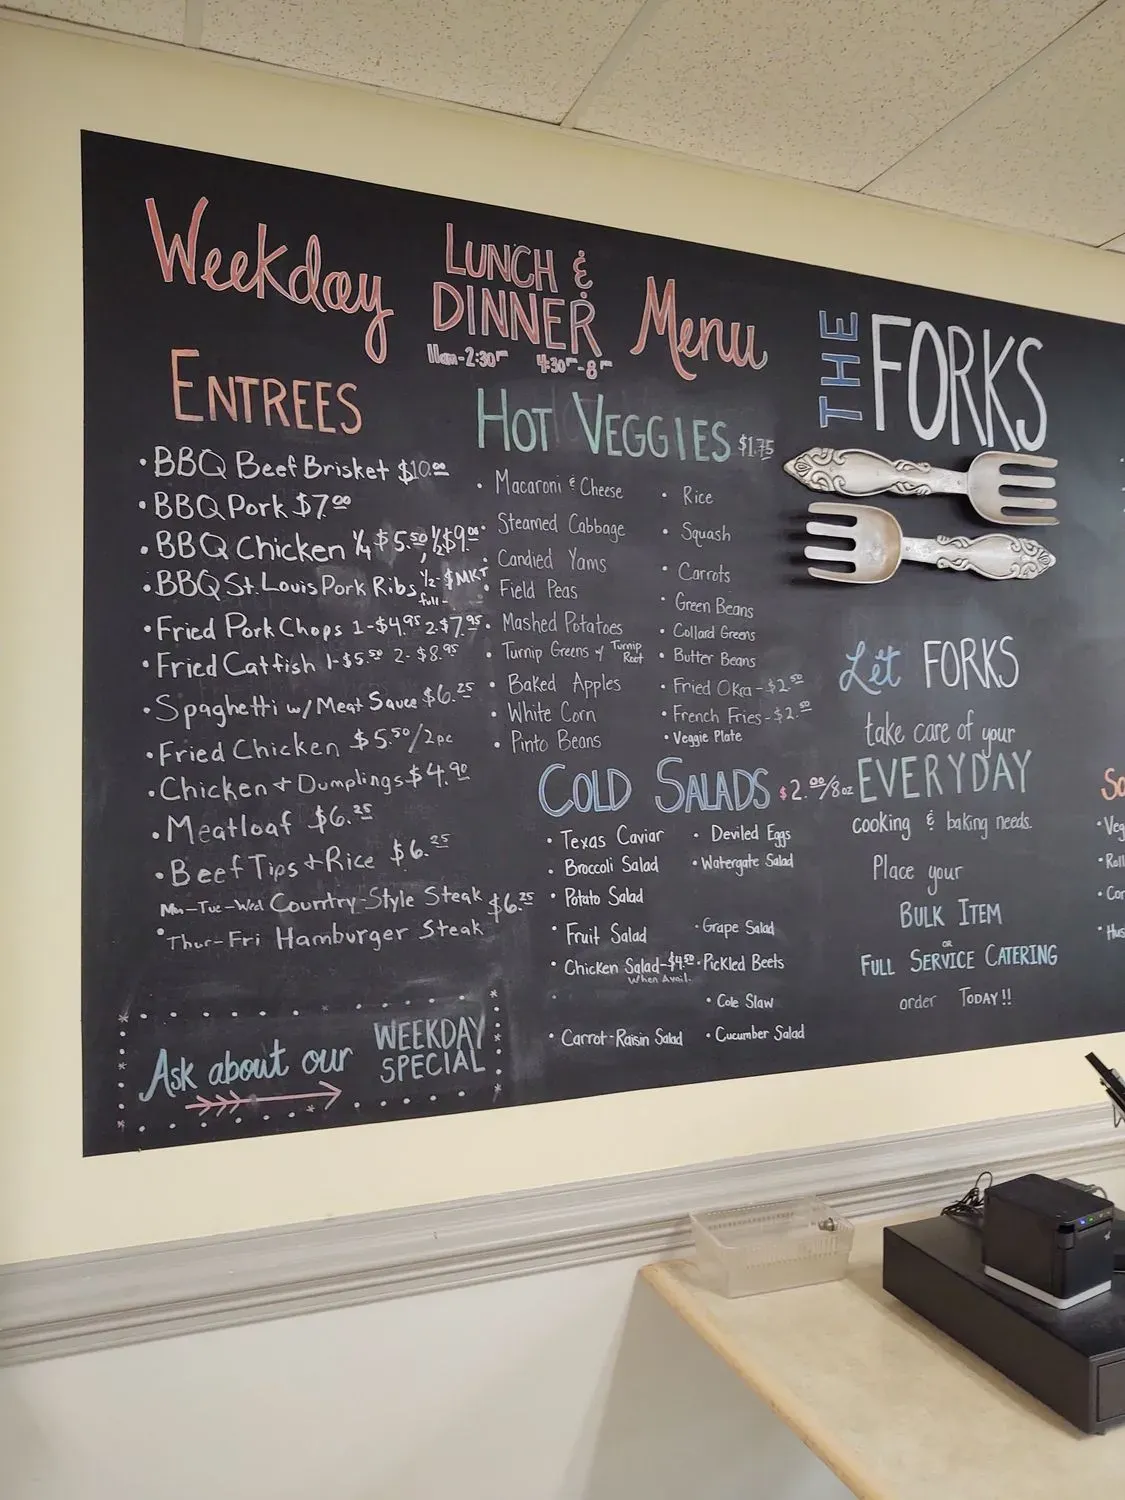 Weekday LUNCH & DINNER Menu
11am-2:30pm 4:30pm-8pm
ENTREES
• BBQ Beef Brisket $10.00
• BBQ Pork $7.00
• BBQ Chicken 1/4 $5.50, 1/2 $9.00
• BBQ St. Louis Pork Ribs 1/2- $MKT
full-
• Fried Pork Chops 1-$4.95 2-$7.95
• Fried Catfish 1-$5.50 2- $8.95
• Spaghetti w/ Meat Sauce $6.25
• Fried Chicken $5.50/2pc
• Chicken + Dumplings $4.90
• Meatloaf $6.25
• Beef Tips + Rice $6.25
Mon-Tue-Wed Country-Style Steak $6.25
• Thur-Fri Hamburger Steak
Ask about our WEEKDAY SPECIAL
HOT VEGGIES $1.75
• Macaroni & Cheese
• Steamed Cabbage
• Candied Yams
• Field Peas
• Mashed Potatoes
• Turnip Greens w/ Turnip Root
• Baked Apples
• White Corn
• Pinto Beans
• Rice
• Squash
• Carrots
• Green Beans
• Collard Greens
• Butter Beans
• Fried Okra - $2.50
• French Fries - $2.50
• Veggie Plate
COLD SALADS $2.00/8oz
• Texas Caviar
• Broccoli Salad
• Potato Salad
• Fruit Salad
• Chicken Salad-$4.50
When Avail.
• Carrot-Raisin Salad
• Deviled Eggs
• Watergate Salad
• Grape Salad
• Pickled Beets
• Cole Slaw
• Cucumber Salad
THE FORKS
Let FORKS
take care of your
EVERYDAY
cooking & baking needs.
Place your
BULK ITEM
OR
FULL SERVICE CATERING
order TODAY!!